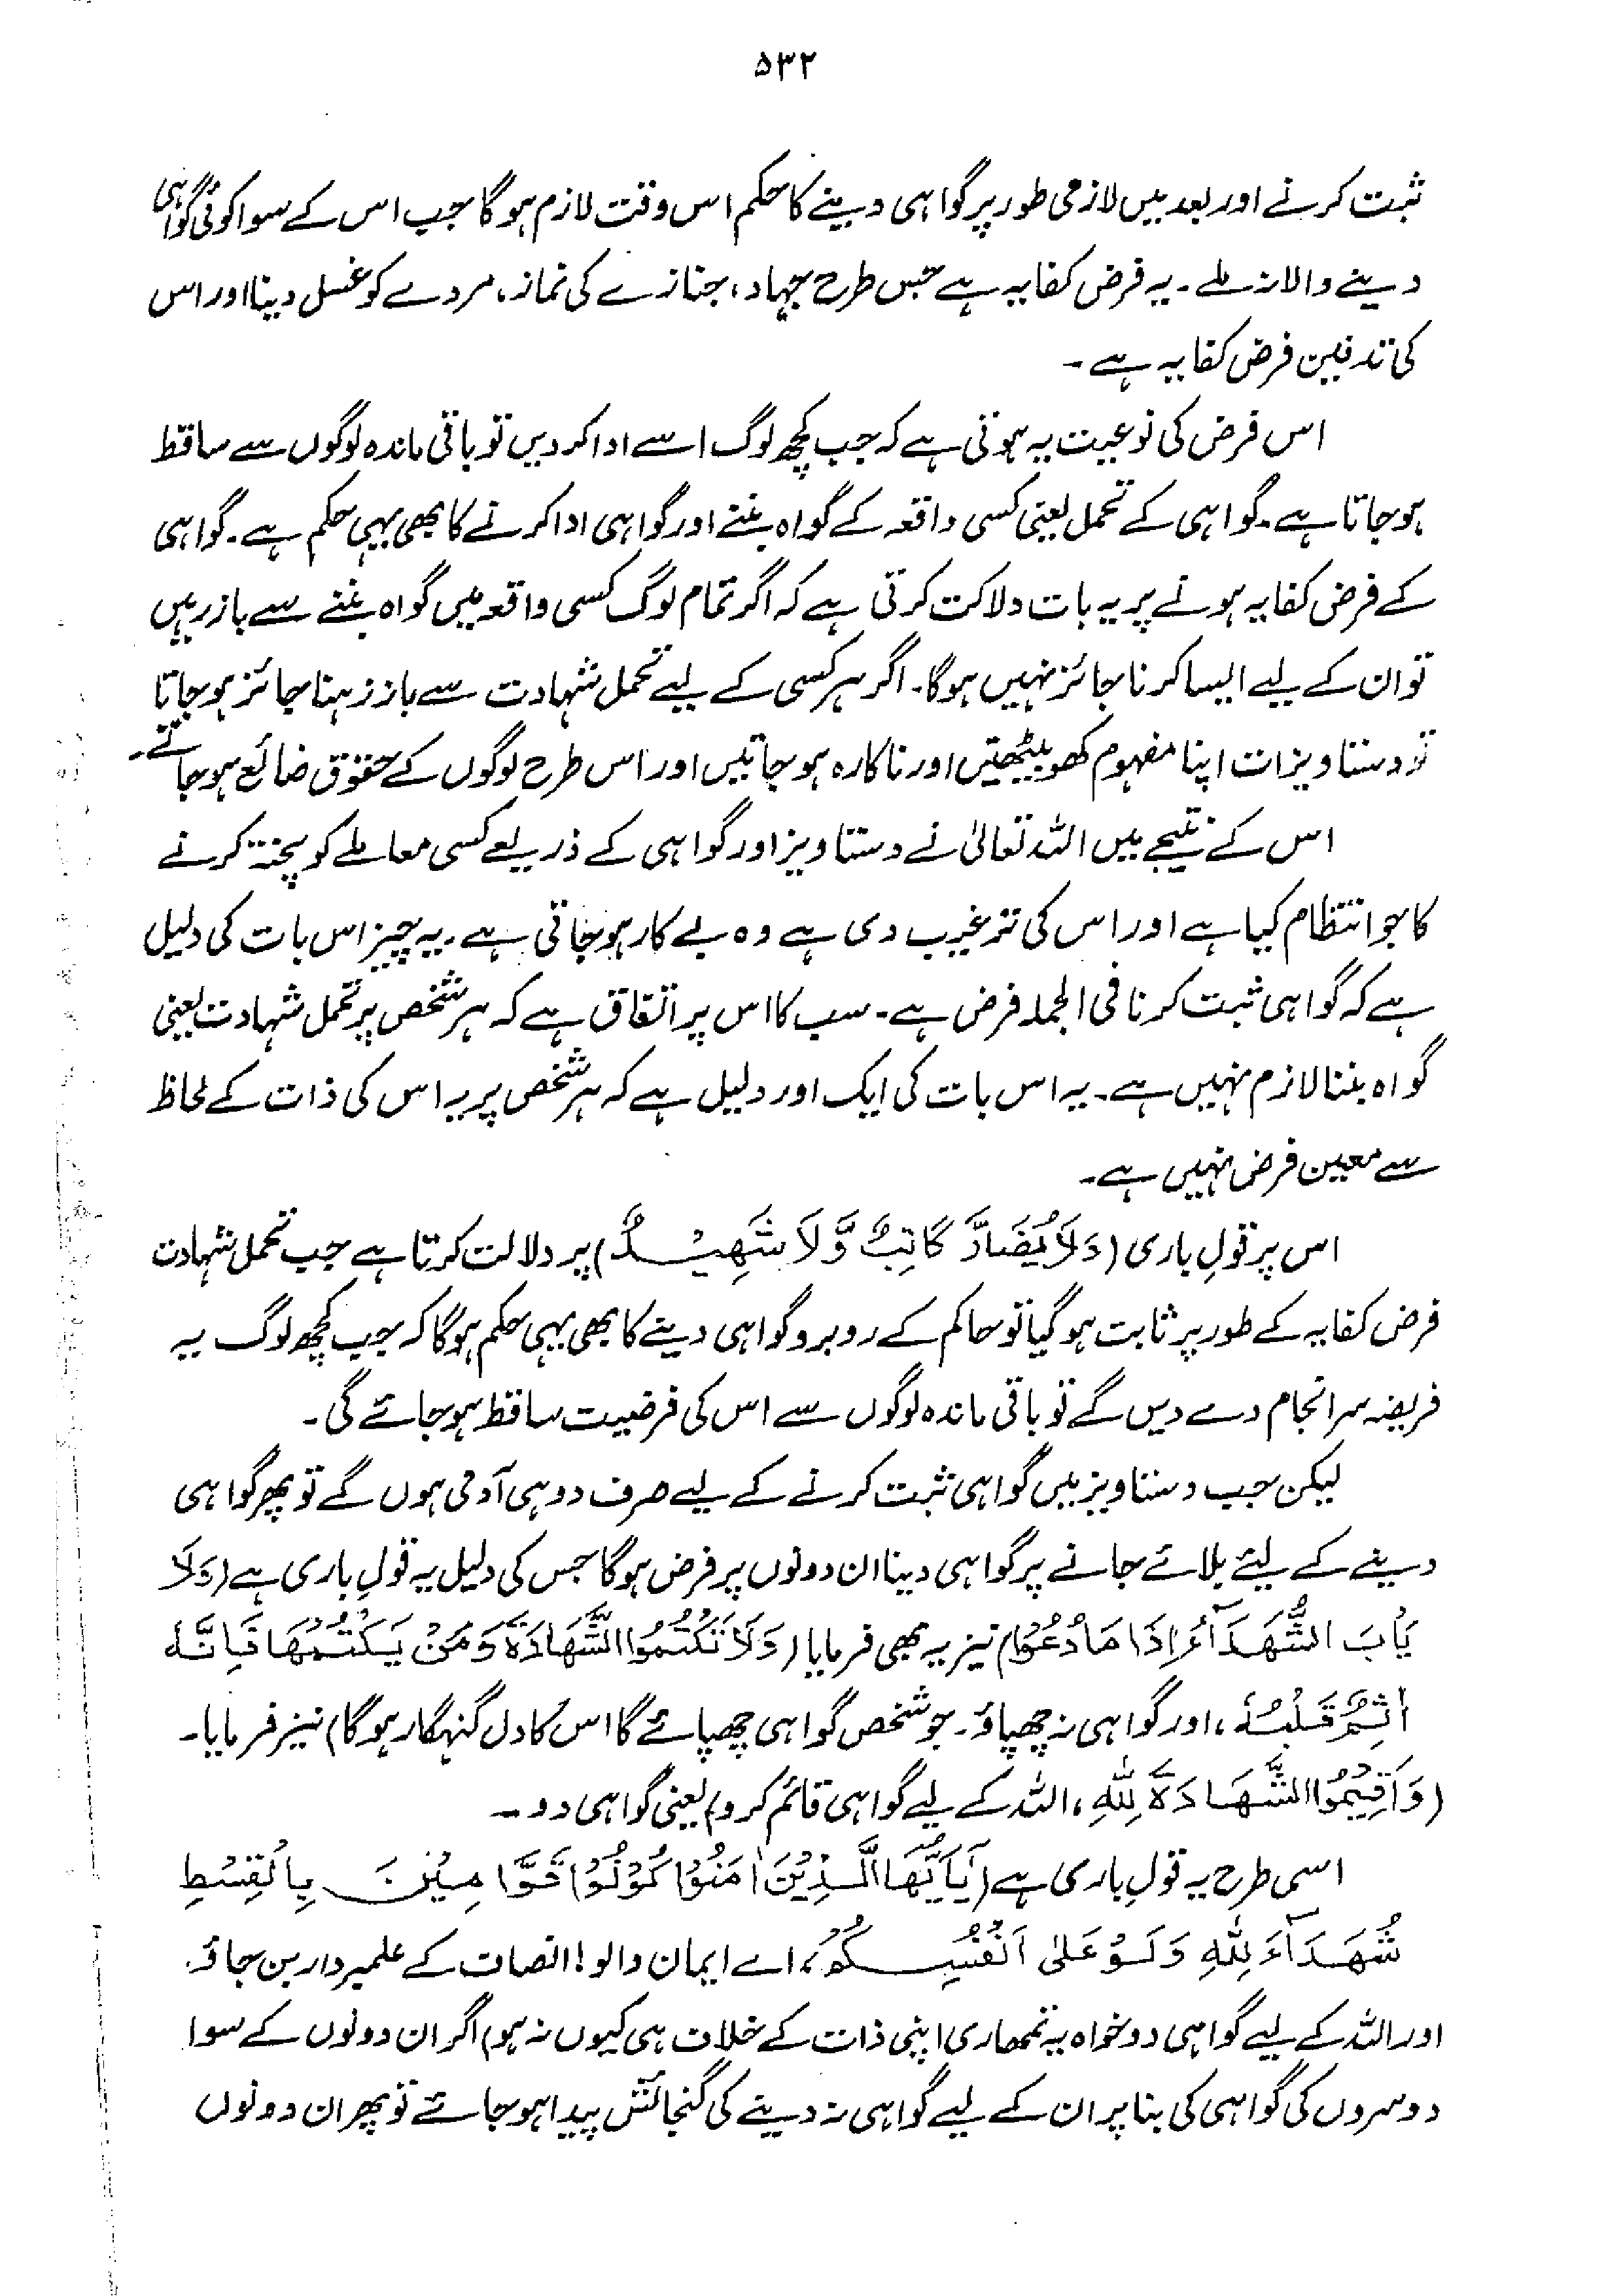 ۵۳۲
ثبت کرنے اور بعد میں لازمی طور پر گواہی دینے کا حکم اس وقت لازم ہوگا جب اس کے سوا کوئی گواہی
دینے والا نہ ملے۔ یہ فرض کفایہ ہے جس طرح جہاد، جنازے کی نماز، مردے کو غسل دینا اور اس
کی تدفین فرض کفایہ ہے۔
اس فرض کی نوعیت یہ ہوتی ہے کہ جب کچھ لوگ اسے ادا کر دیں تو باقی ماندہ لوگوں سے ساقط
ہو جاتا ہے۔ گواہی کے تحمل یعنی کسی واقعہ کے گواہ بننے اور گواہی ادا کرنے کا بھی یہی حکم ہے۔ گواہی
کے فرض کفایہ ہونے پر یہ بات دلالت کرتی ہے کہ اگر تمام لوگ کسی واقعہ میں گواہ بننے سے باز رہیں
تو ان کے لیے ایسا کرنا جائز نہیں ہوگا۔ اگر ہر کسی کے لیے تحمل شہادت سے باز رہنا جائز ہو جاتا
تو دستاویزات اپنا مفہوم کھو بیٹھتیں اور ناکارہ ہو جاتیں اور اس طرح لوگوں کے حقوق ضائع ہو جاتے۔
اس کے نتیجے میں اللہ تعالیٰ نے دستاویز اور گواہی کے ذریعے کسی معاملے کو پختہ کرنے
کا جو انتظام کیا ہے اور اس کی ترغیب دی ہے وہ بے کار ہو جاتی ہے۔ یہ چیز اس بات کی دلیل
ہے کہ گواہی ثبت کرنا فی الجملہ فرض ہے۔ سب کا اس پر اتفاق ہے کہ ہر شخص پر تحمل شہادت یعنی
گواہ بننا لازم نہیں ہے۔ یہ اس بات کی ایک اور دلیل ہے کہ ہر شخص پر یہ اس کی ذات کے لحاظ
سے معین فرض نہیں ہے۔
اس پر قولِ باری (وَلَا یُضَارَّ کَاتِبٌ وَّلَا شَہِیْدٌ) پر دلالت کرتا ہے جب تحمل شہادت
فرض کفایہ کے طور پر ثابت ہو گیا تو حاکم کے روبرو گواہی دینے کا بھی یہی حکم ہوگا کہ جب کچھ لوگ یہ
فریضہ سرانجام دے دیں گے تو باقی ماندہ لوگوں سے اس کی فرضیت ساقط ہو جائے گی۔
لیکن جب دستاویز میں گواہی ثبت کرنے کے لیے صرف دو ہی آدمی ہوں گے تو پھر گواہی
دینے کے لیئے بلائے جانے پر گواہی دینا ان دونوں پر فرض ہوگا جس کی دلیل یہ قولِ باری ہے (وَلَا
یَاْبَ الشُّہَدَآءُ اِذَا مَا دُعُوْا) نیز یہ بھی فرمایا (وَلَا تَکْتُمُوا الشَّہَادَۃَ وَمَنْ یَّکْتُمْہَا فَاِنَّہٗ
اٰثِمٌ قَلْبُہٗ، اور گواہی نہ چھپاؤ۔ جو شخص گواہی چھپائے گا اس کا دل گنہگار ہوگا) نیز فرمایا۔
(وَاَقِیْمُوا الشَّہَادَۃَ لِلّٰہِ، اللہ کے لیے گواہی قائم کرو) یعنی گواہی دو۔
اسی طرح یہ قولِ باری ہے (یٰٓاَیُّہَا الَّذِیْنَ اٰمَنُوْا کُوْنُوْا قَوَّامِیْنَ بِالْقِسْطِ
شُہَدَآءَ لِلّٰہِ وَلَوْ عَلٰی اَنْفُسِکُمْ، اے ایمان والو! انصاف کے علمبردار بن جاؤ۔
اور اللہ کے لیے گواہی دو خواہ یہ تمھاری اپنی ذات کے خلاف ہی کیوں نہ ہو) اگر ان دونوں کے سوا
دوسروں کی گواہی کی بنا پر ان کے لیے گواہی نہ دینے کی گنجائش پیدا ہو جائے تو پھر ان دونوں